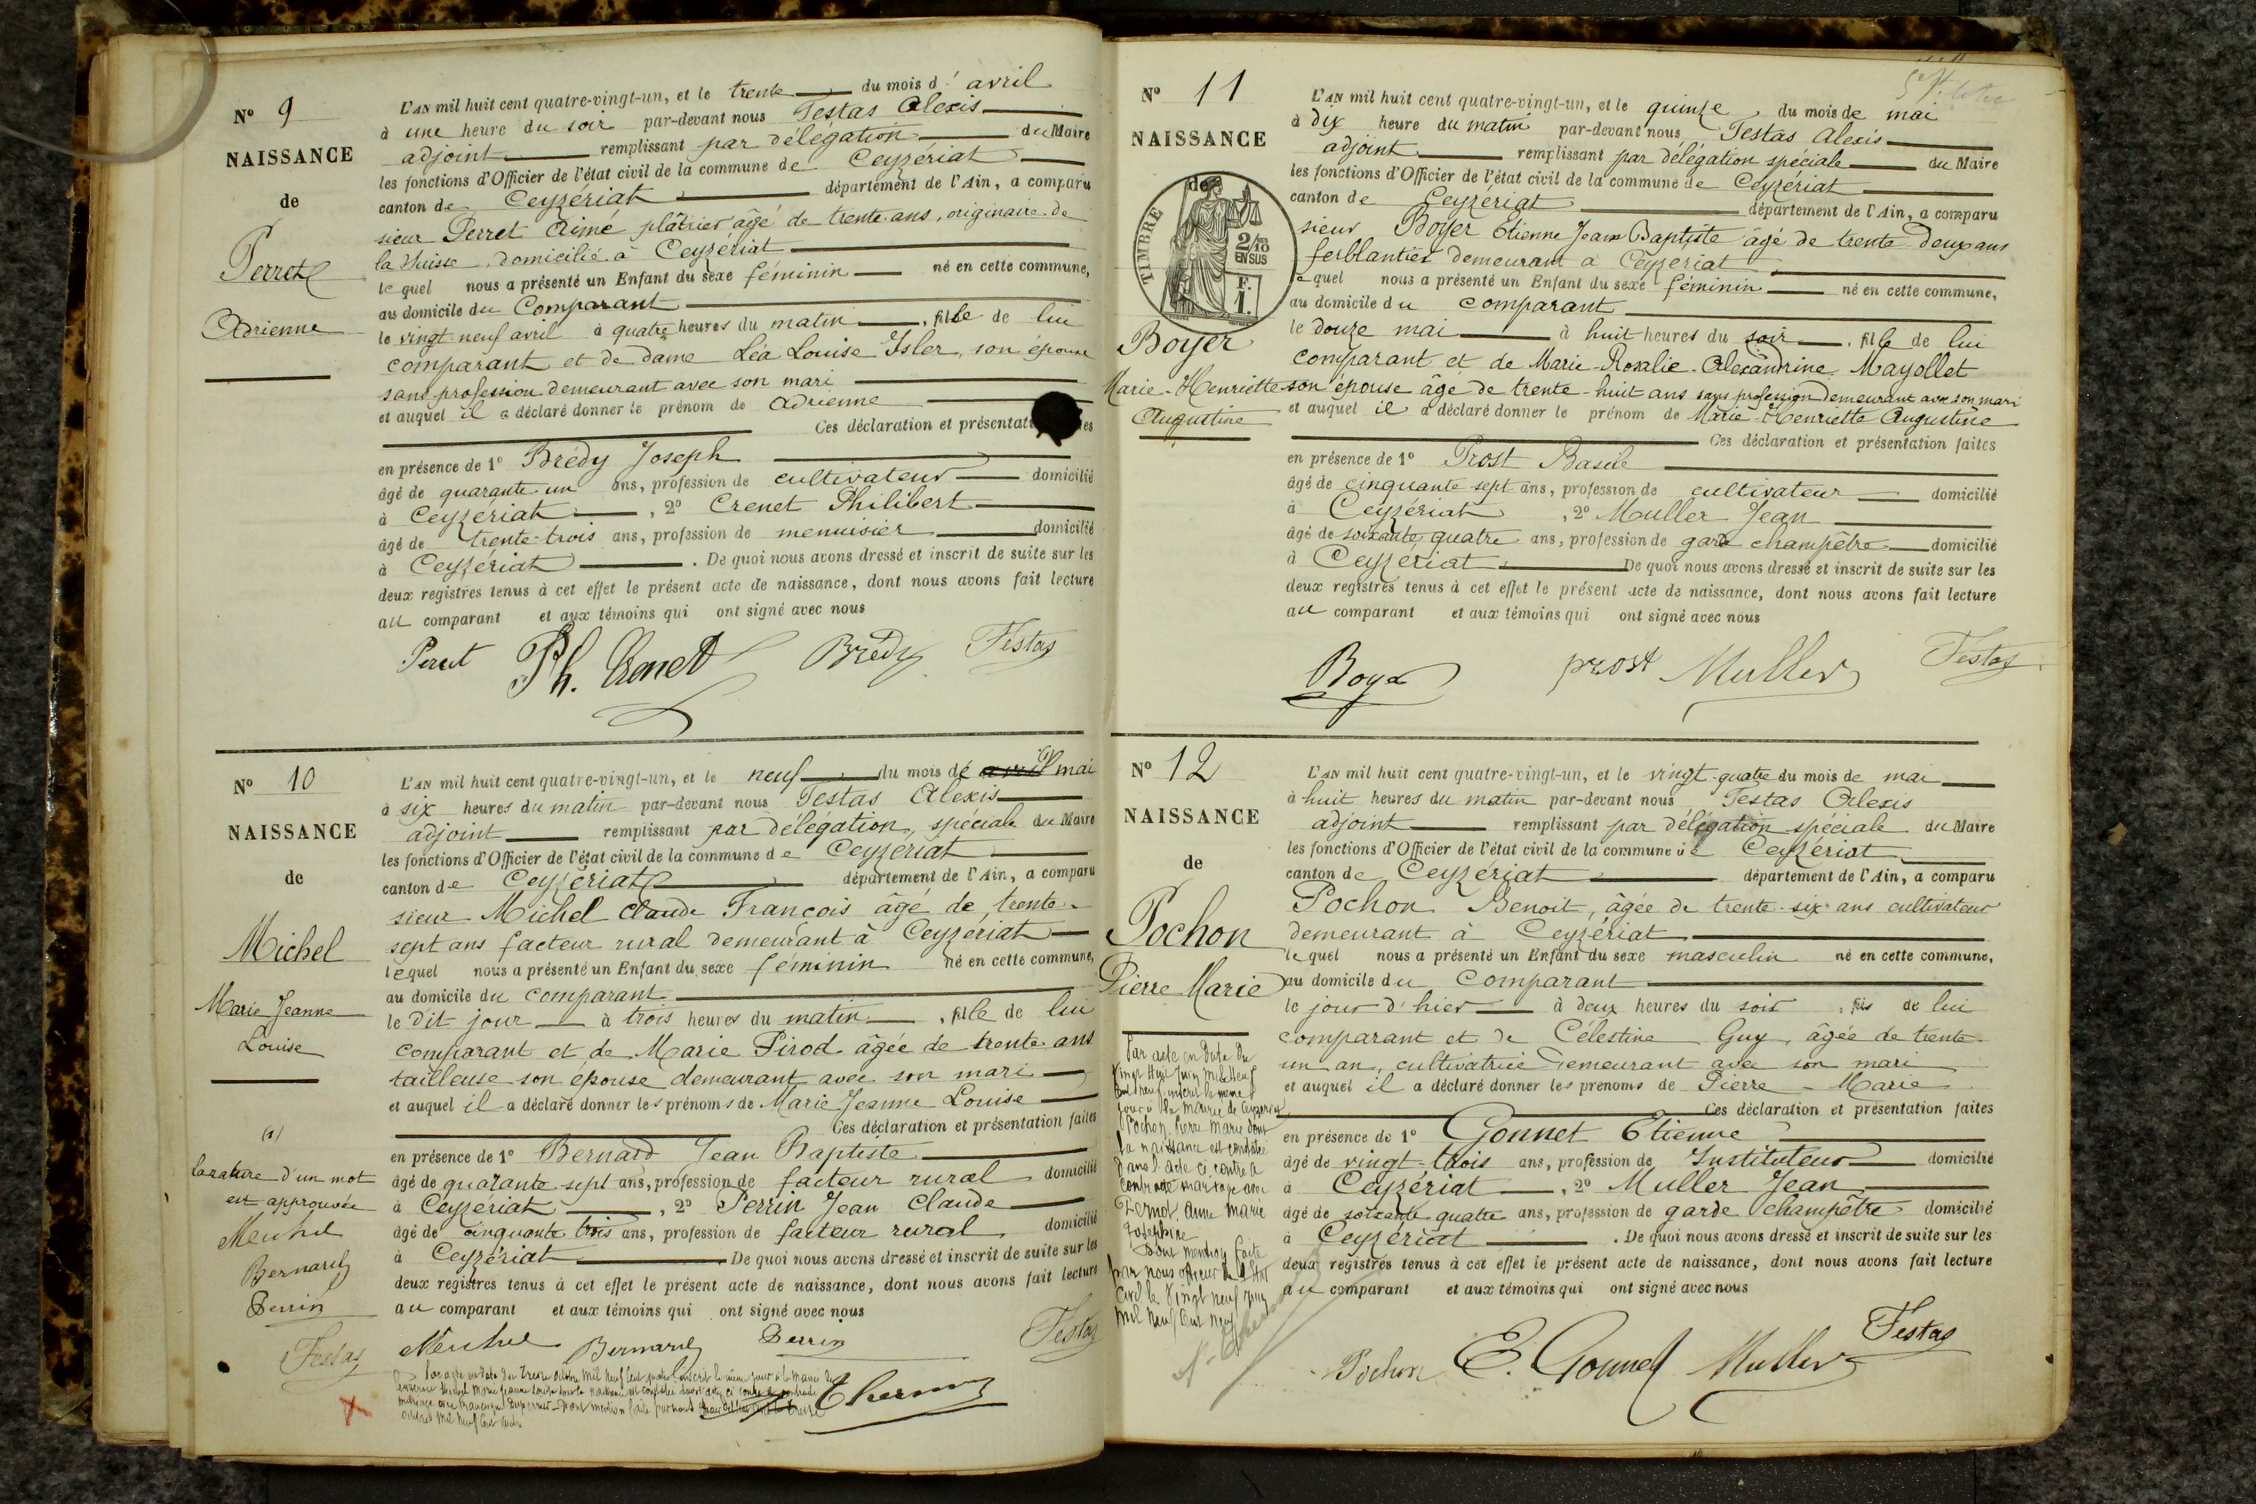 N° 9
NAISSANCE
de
Perret
Adrienne
L'AN mil huit cent quatre-vingt-un, et le trente du mois d'avril
à une heure du soir par-devant nous Testas Alexis
adjoint remplissant par délégation du Maire
les fonctions d'Officier de l'état civil de la commune de Ceyzériat
canton de Ceyzériat département de l'Ain, a comparu
sieur Perret Aimé plâtrier âgé de trente ans, originaire de
la Suisse, domicilié à Ceyzériat
lequel nous a présenté un Enfant du sexe féminin né en cette commune,
au domicile du Comparant
le vingt neuf avril à quatre heures du matin, fille de lui
comparant et de dame Léa Louise Isler, son épouse
sans profession demeurant avec son mari
et auquel il a déclaré donner le prénom de Adrienne
Ces déclaration et présentati es
en présence de 1° Brédy Joseph
âgé de quarante un ans, profession de cultivateur domicilié
à Ceyzériat, 2° Crenet Philibert
âgé de trente-trois ans, profession de menuisier domicilié
à Ceyzériat. De quoi nous avons dressé et inscrit de suite sur les
deux registres tenus à cet effet le présent acte de naissance, dont nous avons fait lecture
au comparant et aux témoins qui ont signé avec nous
Perret Ph. Crenet Brédy Testas
N° 10
NAISSANCE
de
Michel
Marie Jeanne
Louise
(1)
la rature d'un mot
est approuvée
Michel
Bernard
Perrin
Testas
L'AN mil huit cent quatre-vingt-un, et le neuf du mois de avril (1) mai
à six heures du matin par-devant nous Testas Alexis
adjoint remplissant par délégation, spéciale du Maire
les fonctions d'Officier de l'état civil de la commune de Ceyzériat
canton de Ceyzériat département de l'Ain, a comparu
sieur Michel Claude François âgé de trente-
sept ans facteur rural demeurant à Ceyzériat
lequel nous a présenté un Enfant du sexe féminin né en cette commune,
au domicile du comparant
le dit jour à trois heures du matin, fille de lui
comparant et de Marie Pirod âgée de trente ans
tailleuse son épouse demeurant avec son mari
et auquel il a déclaré donner les prénoms de Marie Jeanne Louise
Ces déclaration et présentation faites
en présence de 1° Bernard Jean Baptiste
âgé de quarante sept ans, profession de facteur rural domicilié
à Ceyzériat, 2° Perrin Jean Claude
âgé de cinquante trois ans, profession de facteur rural domicilié
à Ceyzériat De quoi nous avons dressé et inscrit de suite sur les
deux registres tenus à cet effet le présent acte de naissance, dont nous avons fait lecture
au comparant et aux témoins qui ont signé avec nous
Michel Bernard Perrin Testas
Par acte en date du treize octobre mil neuf cent inscrit le même jour à la mairie de
Michel Marie Jeanne Louise dont la naissance est constatée dans l'acte ci contre a contracté
mariage avec Dont mention faite par nous
octobre mil neuf cent
N° 11
NAISSANCE
de
TIMBRE
2/10
EN SUS
F.
1.
Boyer
Marie-Henriette
Augustine
L'AN mil huit cent quatre-vingt-un, et le quinze du mois de mai
à dix heure du matin par-devant nous Testas Alexis
adjoint remplissant par délégation spéciale du Maire
les fonctions d'Officier de l'état civil de la commune de Ceyzériat
canton de Ceyzériat département de l'Ain, a comparu
sieur Boyer Etienne Jean Baptiste âgé de trente deux ans
ferblantier demeurant à Ceyzériat
lequel nous a présenté un Enfant du sexe féminin né en cette commune,
au domicile du comparant
le douze mai à huit heures du soir, fille de lui
comparant et de Marie-Rosalie-Alexandrine Mayollet
son épouse âge de trente-huit ans sans profession demeurant avec son mari
et auquel il a déclaré donner le prénom de Marie-Henriette Augustine
Ces déclaration et présentation faites
en présence de 1° Prost Basile
âgé de cinquante sept ans, profession de cultivateur domicilié
à Ceyzériat, 2° Muller Jean
âgé de soixante quatre ans, profession de garde champêtre domicilié
à Ceyzériat De quoi nous avons dressé et inscrit de suite sur les
deux registres tenus à cet effet le présent acte de naissance, dont nous avons fait lecture
au comparant et aux témoins qui ont signé avec nous
Boyer prost Muller Testas
N° 12
NAISSANCE
de
Pochon
Pierre Marie
Par acte en date du
vingt huit juin mil neuf
cent neuf inscrit le même
jour à la mairie de Ceyzériat
Pochon Pierre Marie dont
la naissance est constatée
dans l'acte ci contre a
contracté mariage avec
Anne Marie
Joséphine
Dont mention faite
par nous officier de l'état
civil le vingt neuf juin
mil neuf cent neuf
L'AN mil huit cent quatre-vingt-un, et le vingt-quatre du mois de mai
à huit heures du matin par-devant nous Testas Alexis
adjoint remplissant par délégation spéciale du Maire
les fonctions d'Officier de l'état civil de la commune de Ceyzériat
canton de Ceyzériat département de l'Ain, a comparu
Pochon Benoit, âgée de trente-six ans cultivateur
demeurant à Ceyzériat
lequel nous a présenté un Enfant du sexe masculin né en cette commune,
au domicile du comparant
le jour d'hier à deux heures du soir, fils de lui
comparant et de Célestine Guy, âgée de trente-
un an, cultivatrice demeurant avec son mari
et auquel il a déclaré donner les prénoms de Pierre-Marie
Ces déclaration et présentation faites
en présence de 1° Gonnet Etienne
âgé de vingt-trois ans, profession de Instituteur domicilié
à Ceyzériat, 2° Muller Jean
âgé de soixante quatre ans, profession de garde champêtre domicilié
à Ceyzériat. De quoi nous avons dressé et inscrit de suite sur les
deux registres tenus à cet effet le présent acte de naissance, dont nous avons fait lecture
au comparant et aux témoins qui ont signé avec nous
Pochon E. Gonnet Muller Testas